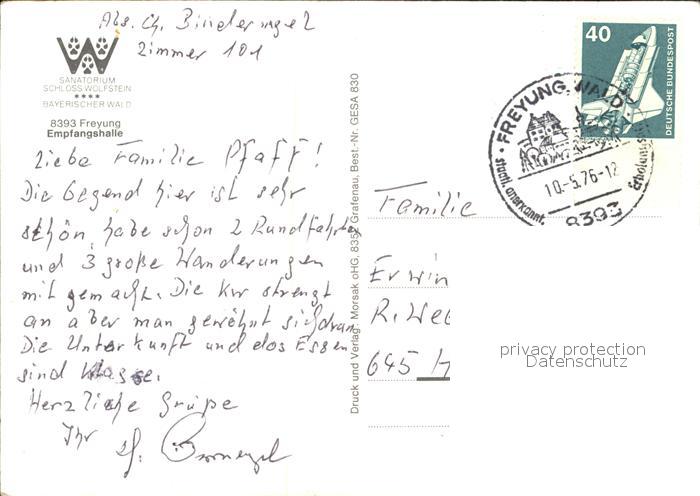 Abs. Ch. Bindernagel
Zimmer 101
SANATORIUM
SCHLOSS WOLFSTEIN
****
BAYERISCHER WALD
8393 Freyung
Empfangshalle
Liebe Familie Pfaff!
Die Gegend hier ist sehr
schön, habe schon 2 Rundfahrten
und 3 große Wanderungen
mit gemacht. Die Kur strengt
an aber man gewöhnt sich dran
Die Unterkunft und das Essen
sind Klasse.
Herzliche Grüße
Ihr Ch.
Druck und Verlag: Morsak oHG, 8352 Grafenau, Best.-Nr. GESA 830
40
DEUTSCHE BUNDESPOST
FREYUNG, WALD
staatl. anerkannt.
10.-5.76-12
8393
Familie
Erwin
R. We
645 H
privacy protection
Datenschutz